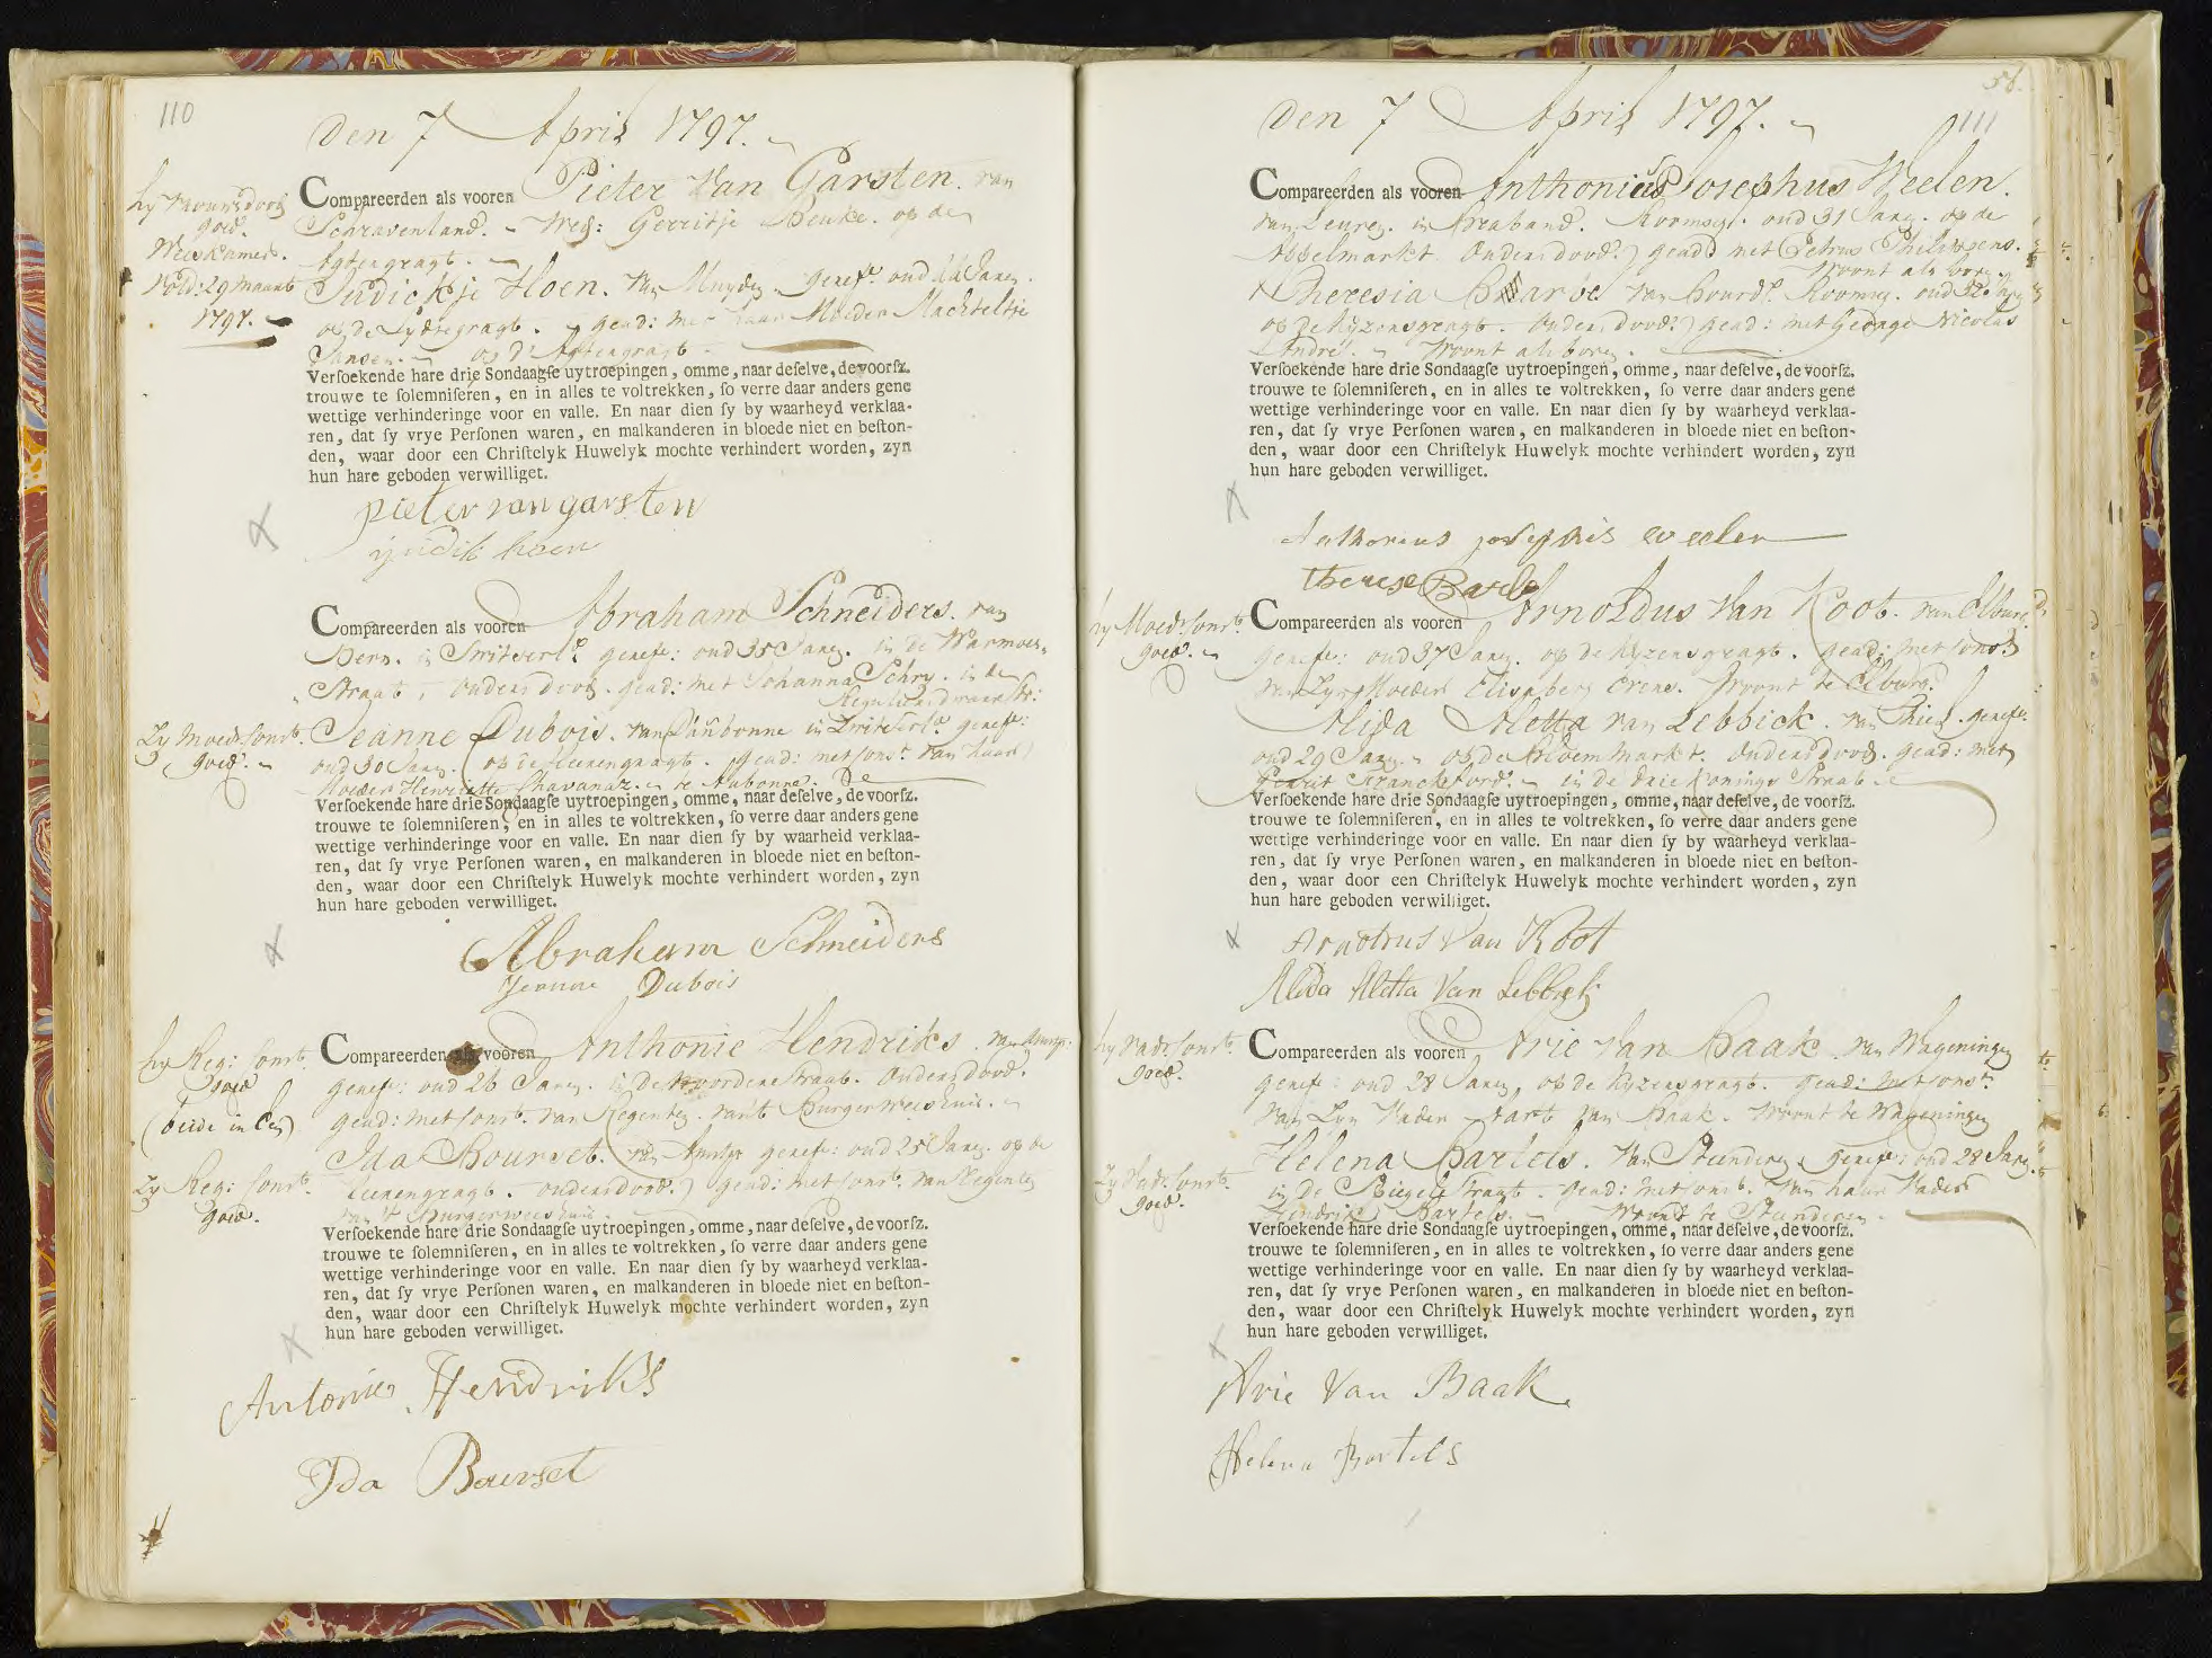 110
Den 7 April 1797.
hy vrouws doop
goed.
Weeskamer.
vold: 29 maart
1797.
Compareerden als vooren Pieter Van Garsten. van
Schravenland. Wed: Gerritje Beuke. op de
Agtergragt.
Judickje Hoen. van Muyden. geref: oud Jaren.
op de Lydsegragt. gead: met haar Moeder Machteltje
Jansen. op d' Agtergragt.
Verſoekende hare drie Sondaagſe uytroepingen, omme, naar deſelve, de voorſz.
trouwe te ſolemniſeren, en in alles te voltrekken, ſo verre daar anders gene
wettige verhinderinge voor en valle. En naar dien ſy by waarheyd verklaa-
ren, dat ſy vrye Perſonen waren, en malkanderen in bloede niet en beſton-
den, waar door een Chriſtelyk Huwelyk mochte verhindert worden, zyn
hun hare geboden verwilliget.
pieter van garsten
judik hoen
Compareerden als vooren Abraham Schneiders. van
Bern. in Switserl.d geref: oud 35 Jaren. in de Warmoes
Straat, Ouders dood. gead: met Johanna Schry. in de
Reguliersdwarsstr:
Zy Moeds. Const.
goed.
Jeanne Dubois. van Danbonne in Switserl.d geref:
oud 30 Jaren. op de Heerengragt. gead: met Const. van haar
Moeder Henriette Chavanaz. te Aubonne.
Verſoekende hare drie Sondaagſe uytroepingen, omme, naar deſelve, de voorſz.
trouwe te ſolemniſeren, en in alles te voltrekken, ſo verre daar anders gene
wettige verhinderinge voor en valle. En naar dien ſy by waarheid verklaa-
ren, dat ſy vrye Perſonen waren, en malkanderen in bloede niet en beſton-
den, waar door een Chriſtelyk Huwelyk mochte verhindert worden, zyn
hun hare geboden verwilliget.
Abraham Schneiders
Jeanne Dubois
hy Reg: Const.
goed
(beide in Een)
Compareerden als vooren Anthonie Hendriks. van Amst:
geref: oud 26 Jaren. in de Noorderstraat. Ouders dood.
gead: met Const. van Regenten van 't Burgerweeshuis.
Zy Reg: Const.
goed.
Ida Bourset. van Amst. geref: oud 25 Jaren. op de
Heerengragt. ouders dood. gead: met Const. van Regenten
van 't Burgerweeshuis.
Verſoekende hare drie Sondaagſe uytroepingen, omme, naar deſelve, de voorſz.
trouwe te ſolemniſeren, en in alles te voltrekken, ſo verre daar anders gene
wettige verhinderinge voor en valle. En naar dien ſy by waarheyd verklaa-
ren, dat ſy vrye Perſonen waren, en malkanderen in bloede niet en beſton-
den, waar door een Chriſtelyk Huwelyk mochte verhindert worden, zyn
hun hare geboden verwilliget.
Antonie Hendriks
Ida Bourset
56.
111
Den 7 April 1797.
Compareerden als vooren Anthonius Josephus Weelen.
van Leuven. in Braband. Roomsgz. oud 31 Jaren. op de
Appelmarkt. Ouders dood. gead: met Petrus Philipsens.
woont als boven.
Theresia Barbe van Bourd. Roomsg. oud 32 Jaren
op de Kyzersgragt. Ouders dood. gead: met George Nicolas
André. woont als boven.
Verſoekende hare drie Sondaagſe uytroepingen, omme, naar deſelve, de voorſz.
trouwe te ſolemniſeren, en in alles te voltrekken, ſo verre daar anders gene
wettige verhinderinge voor en valle. En naar dien ſy by waarheyd verklaa-
ren, dat ſy vrye Perſonen waren, en malkanderen in bloede niet en beſton-
den, waar door een Chriſtelyk Huwelyk mochte verhindert worden, zyn
hun hare geboden verwilliget.
Anthonius josephis weelen
therese Barbe
hy Moeds. Const.
goed.
Compareerden als vooren Arnoldus Van Koot. van Elburg.
geref: oud 37 Jaren. op de Kyzersgragt. gead: met Const
van Zyn Moeder Elisabeth Crens. woont te Elburg.
Alida Aletta van Lebbick. van Thiel. geref:
oud 29 Jaren. op de Bloemmarkt. Ouders dood. gead: met
Gerrit Franckford. in de Drie Konings Straat.
Verſoekende hare drie Sondaagſe uytroepingen, omme, naar deſelve, de voorſz.
trouwe te ſolemniſeren, en in alles te voltrekken, ſo verre daar anders gene
wettige verhinderinge voor en valle. En naar dien ſy by waarheyd verklaa-
ren, dat ſy vrye Perſonen waren, en malkanderen in bloede niet en beſton-
den, waar door een Chriſtelyk Huwelyk mochte verhindert worden, zyn
hun hare geboden verwilliget.
Arnoldus Van Koot
Alida Aletta Van Lebbek
hy Vad. Const.
goed.
Compareerden als vooren Arie Van Baak. van Wageningen
geref: oud 28 Jaren, op de Kyzersgragt. gead: met Const.
van Zyn Vader Aart van Baak. woont te Wageningen
Zy Vad. Const.
goed.
Helena Bartels. van Steenderen. geref: oud 28 Jaren.
in de Spiegelstraat. gead: met Const. van haar Vader
Hendrik Bartels. woont te Steenderen.
Verſoekende hare drie Sondaagſe uytroepingen, omme, naar deſelve, de voorſz.
trouwe te ſolemniſeren, en in alles te voltrekken, ſo verre daar anders gene
wettige verhinderinge voor en valle. En naar dien ſy by waarheyd verklaa-
ren, dat ſy vrye Perſonen waren, en malkanderen in bloede niet en beſton-
den, waar door een Chriſtelyk Huwelyk mochte verhindert worden, zyn
hun hare geboden verwilliget.
Arie Van Baak
Helena Bartels